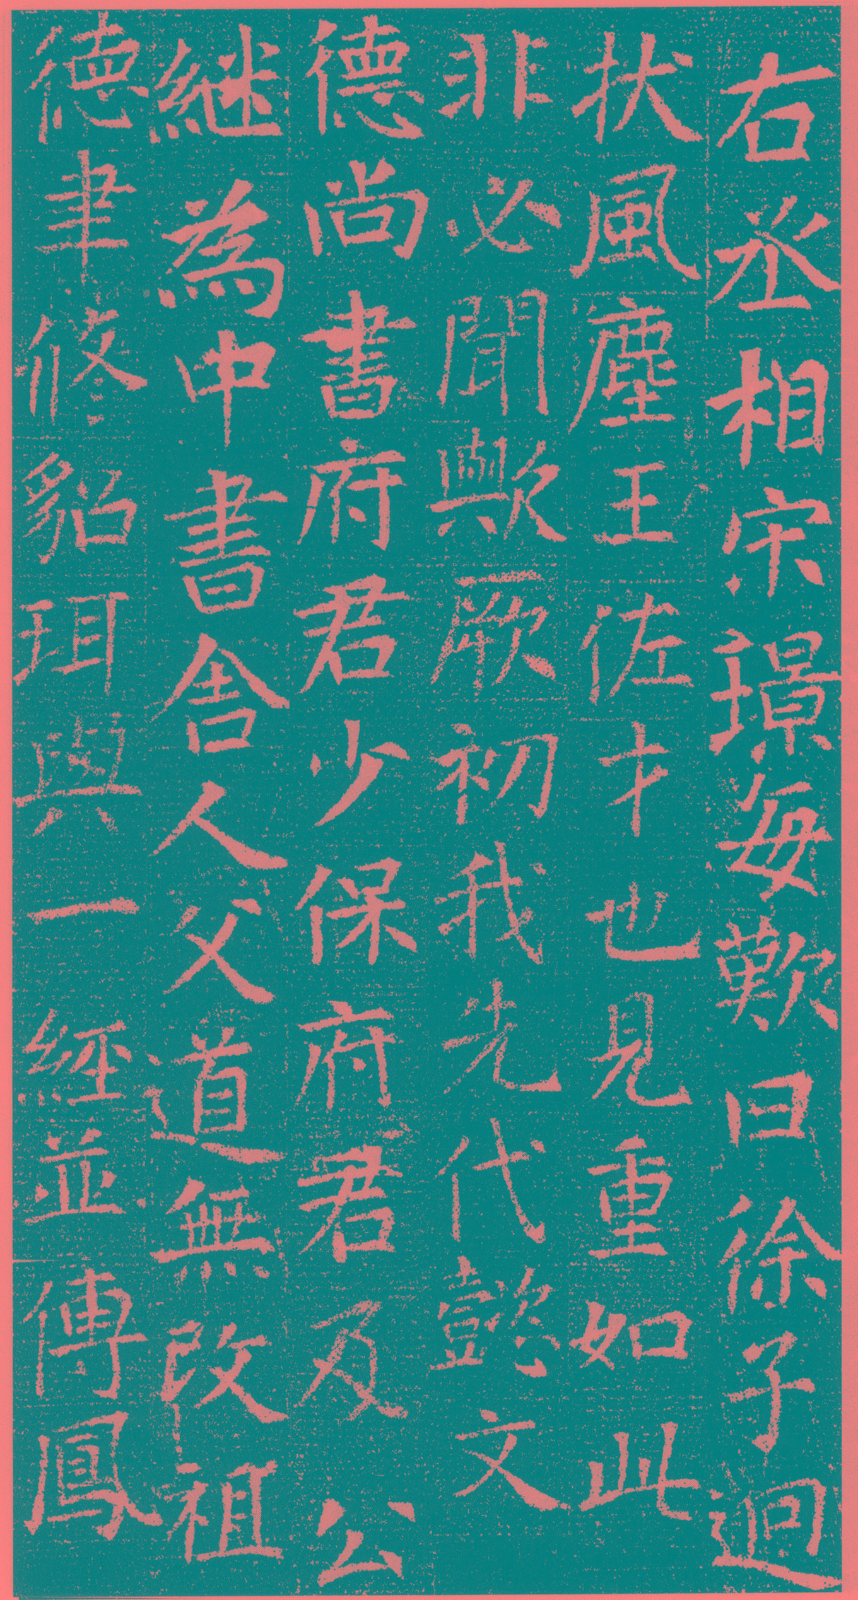 右丞相宋璟每歎曰徐子迥
狀風塵王佐才也見重如此
非必聞歟厥初我先代懿文
德尚書府君少保府君及公
繼為中書舍人父道無改祖
德聿修貂珥與一經並傳鳳